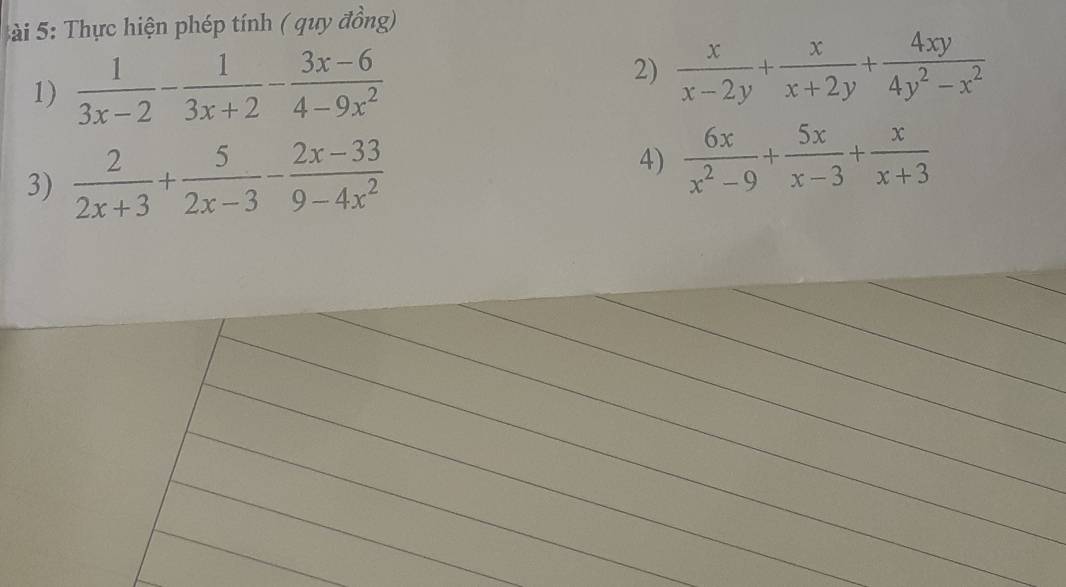 ài 5: Thực hiện phép tính ( quy đồng)
1) \frac{1}{3x-2} - \frac{1}{3x+2} - \frac{3x-6}{4-9x^2}
2) \frac{x}{x-2y} + \frac{x}{x+2y} + \frac{4xy}{4y^2-x^2}
3) \frac{2}{2x+3} + \frac{5}{2x-3} - \frac{2x-33}{9-4x^2}
4) \frac{6x}{x^2-9} + \frac{5x}{x-3} + \frac{x}{x+3}